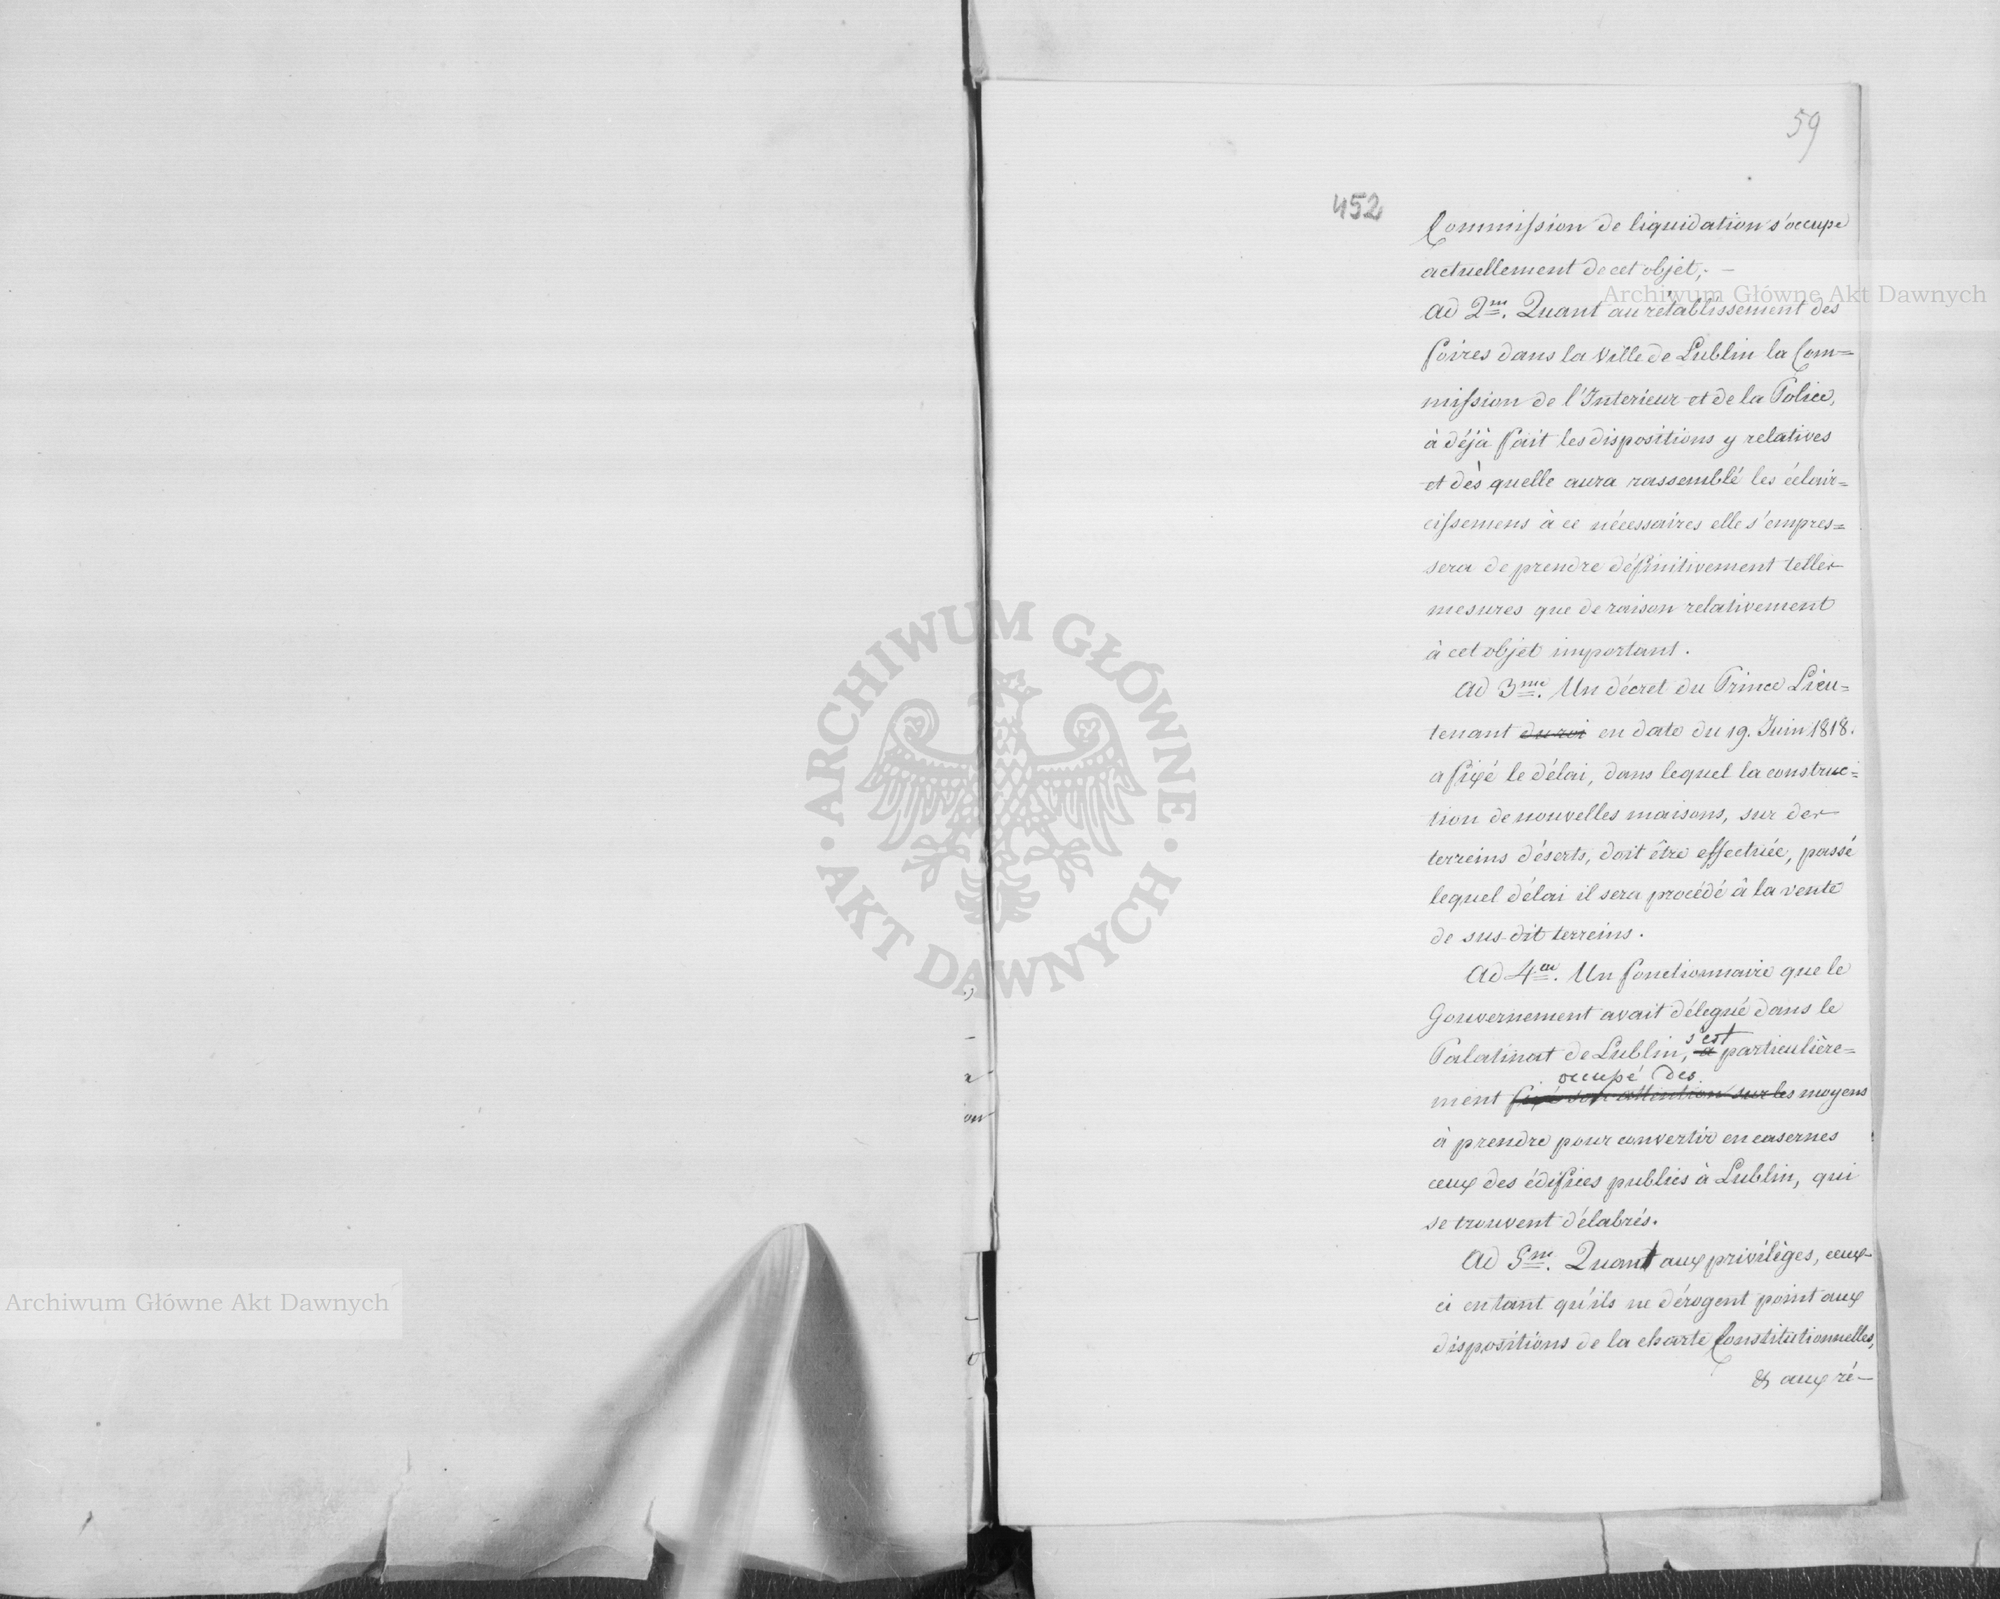 59
452
Commission de liquidation s'occupe
actuellement de cet objet; —
Ad 2m. Quant au rétablissement des
foires dans la Ville de Lublin la Com=
mission de l'Interieur et de la Police,
à déjà fait les dispositions y relatives
et dès quelle aura rassemblé les éclair=
cissemens à ce nécessaires elle s'empres=
sera de prendre définitivement telles
mesures que de raison relativement
à cet objet important.
Ad 3me. Un décret du Prince Lieu=
tenant du roi en date du 19. Juin 1818.
a fixé le délai, dans lequel la construc=
tion de nouvelles maisons, sur des
terreins déserts, doit être effectuée, passé
lequel délai il sera procédé à la vente
de sus-dit terreins.
Ad 4me. Un fonctionnaire que le
Gouvernement avait délegué dans le
s'est
Palatinat de Lublin, a particulière=
occupé des
ment fixé son attention sur les moyens
à prendre pour convertir en casernes
ceux des édifices publics à Lublin, qui
se trouvent délabrés.
Ad 5me. Quant aux privilèges, ceux-
ci en tant qu'ils ne dérogent point aux
dispositions de la charte Constitutionnelles,
& aux ré—
Archiwum Główne Akt Dawnych
Archiwum Główne Akt Dawnych
ARCHIWUM GŁÓWNE · AKT DAWNYCH ·